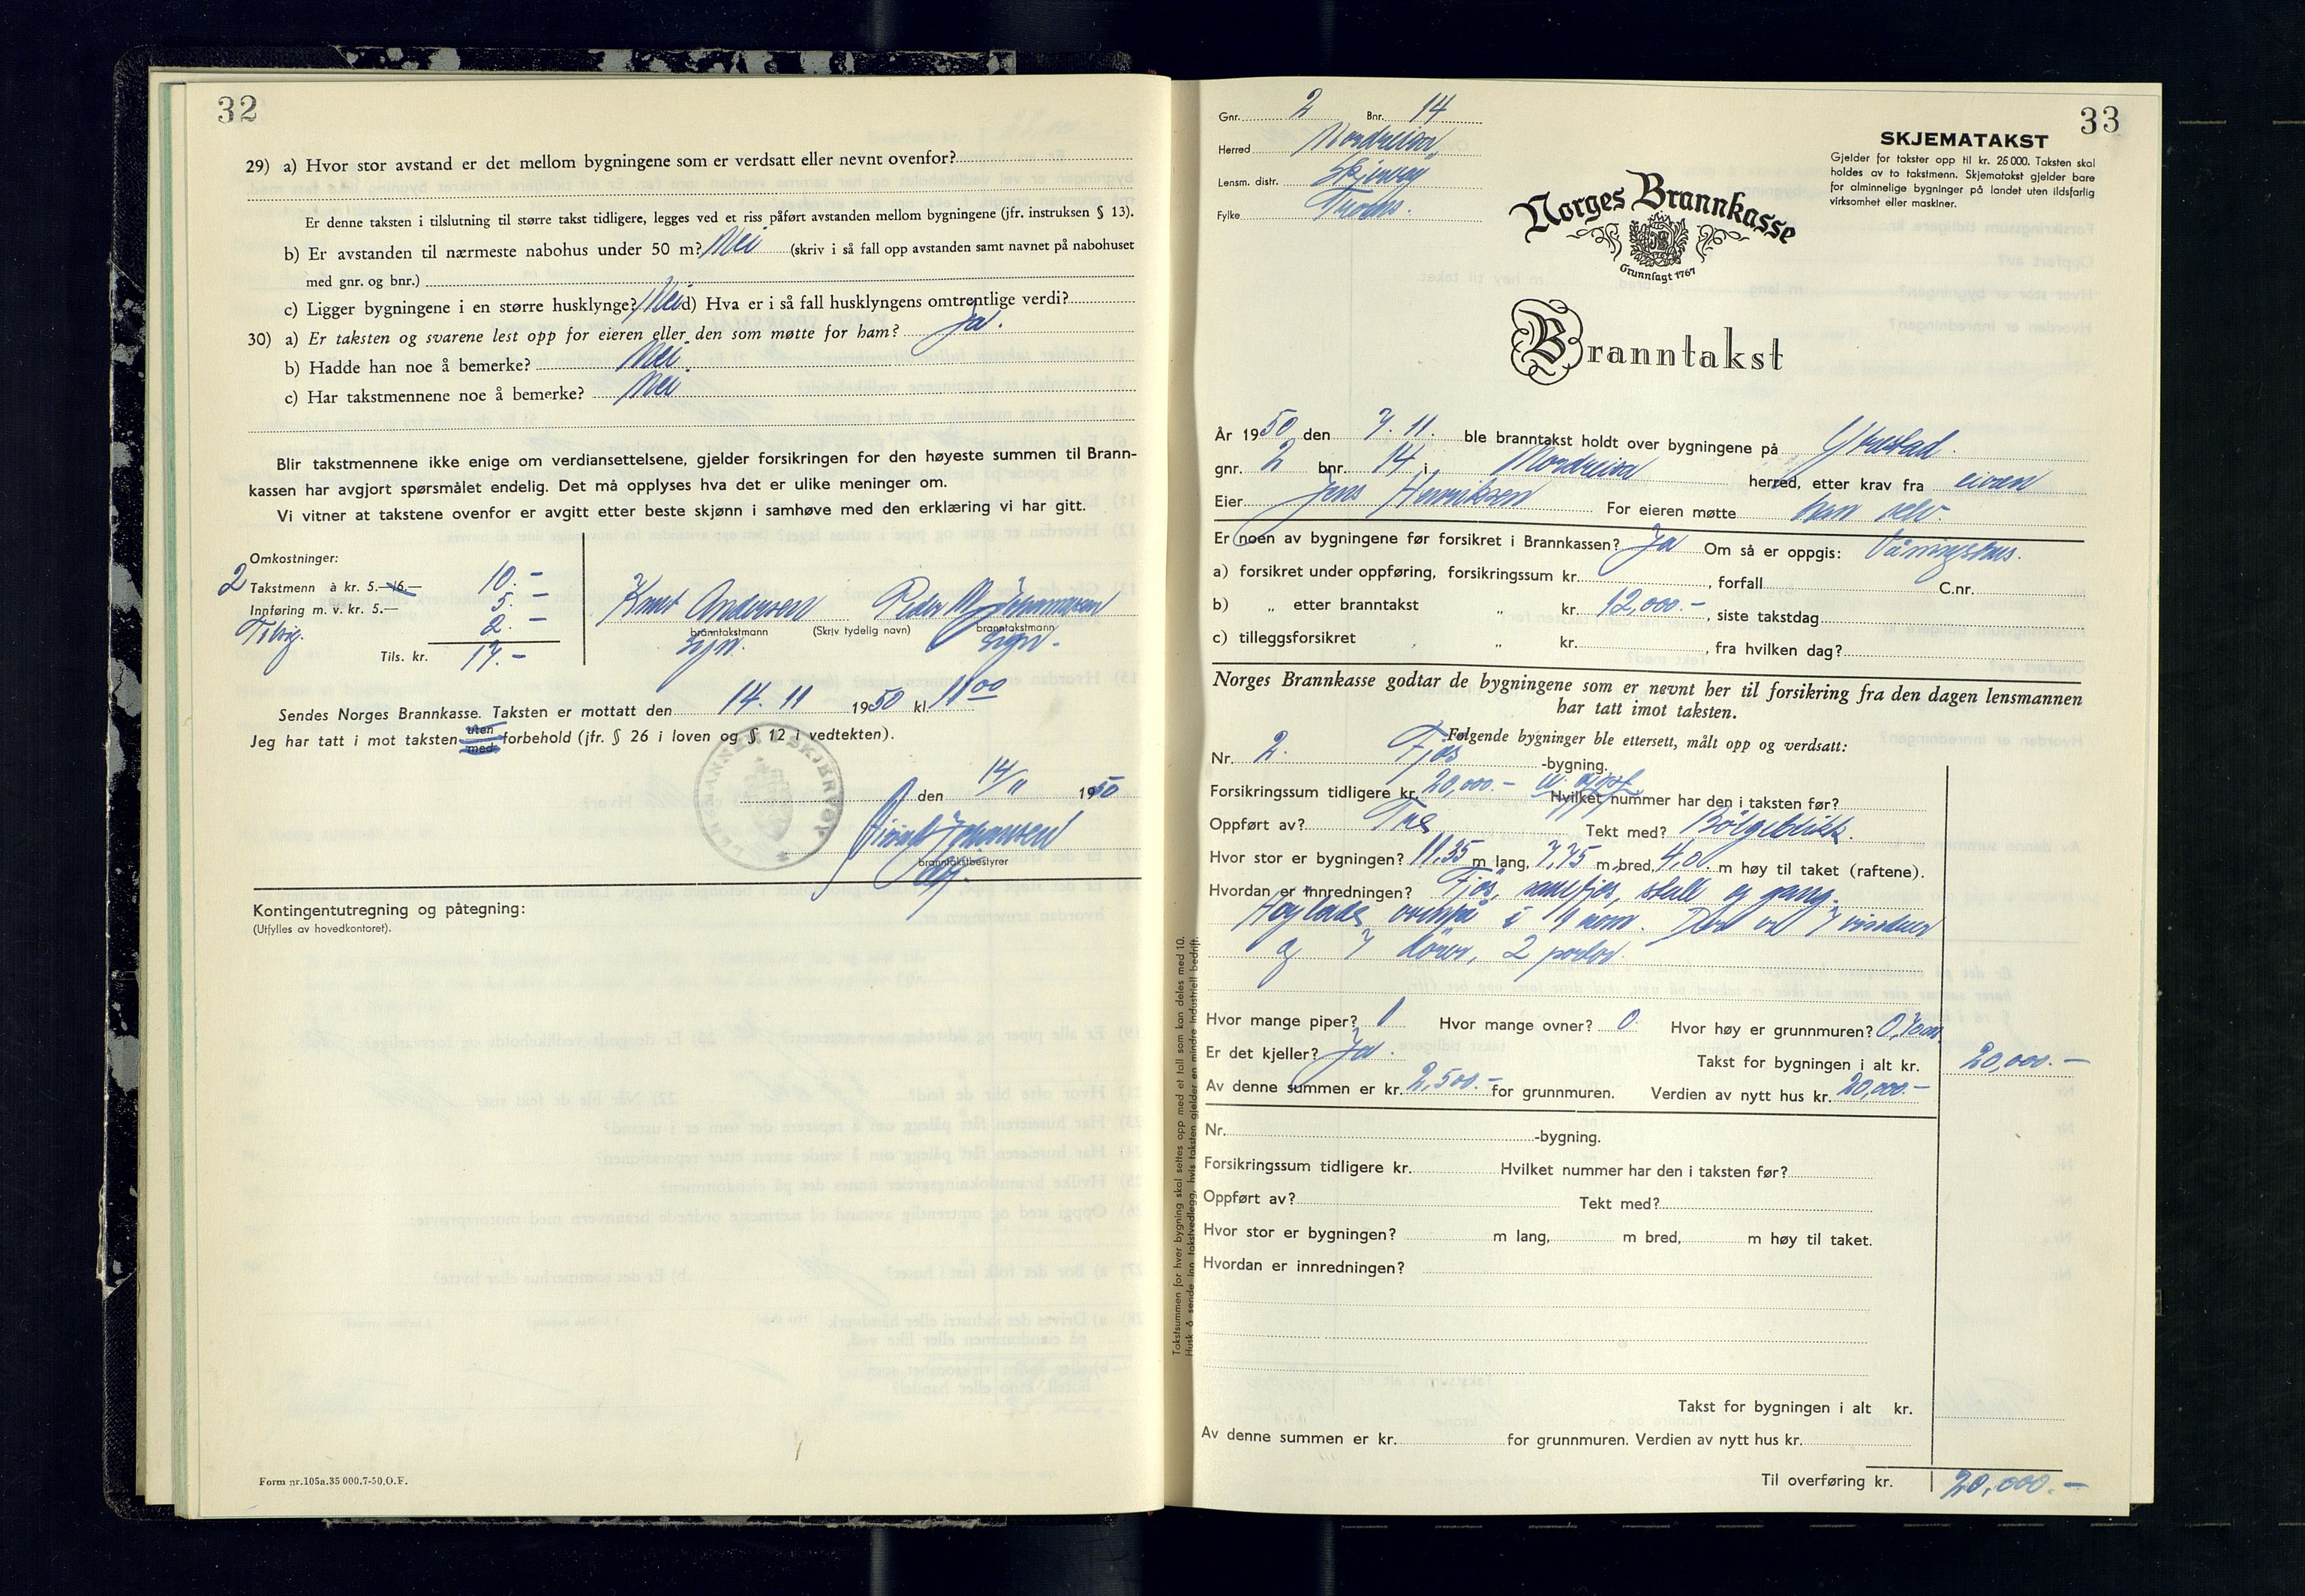 32
29) a) Hvor stor avstand er det mellom bygningene som er verdsatt eller nevnt ovenfor?
Er denne taksten i tilslutning til større takst tidligere, legges ved et riss påført avstanden mellom bygningene (jfr. instruksen § 13).
b) Er avstanden til nærmeste nabohus under 50 m? Nei (skriv i så fall opp avstanden samt navnet på nabohuset
med gnr. og bnr.)
c) Ligger bygningene i en større husklynge? Nei d) Hva er i så fall husklyngens omtrentlige verdi?
30) a) Er taksten og svarene lest opp for eieren eller den som møtte for ham? Ja.
b) Hadde han noe å bemerke? Nei
c) Har takstmennene noe å bemerke? Nei
Blir takstmennene ikke enige om verdiansettelsene, gjelder forsikringen for den høyeste summen til Brann-
kassen har avgjort spørsmålet endelig. Det må opplyses hva det er ulike meninger om.
Vi vitner at takstene ovenfor er avgitt etter beste skjønn i samhøve med den erklæring vi har gitt.
Omkostninger:
2 Takstmenn à kr. 5.—/6.— 10.-
Innføring m. v. kr. 5.— 5.-
2.-
Tils. kr. 17.-
Knut Andersen Peder M. Johannesen
branntakstmann (Skriv tydelig navn) branntakstmann
sign. sign.
Sendes Norges Brannkasse. Taksten er mottatt den 14. 11 1950 kl. 11 00
Jeg har tatt i mot taksten uten med forbehold (jfr. § 26 i loven og § 12 i vedtekten).
LENSMANNEN I SKJERVØY
den 14/11 1950
Johansen
branntakstbestyrer
Kontingentutregning og påtegning:
(Utfylles av hovedkontoret).
Form nr.105a.35 000.7-50.O.F.
33
Gnr. 2 Bnr. 14
Herred Nordreisa
Lensm. distr. Skjervøy
Fylke Troms.
SKJEMATAKST
Gjelder for takster opp til kr. 25 000. Taksten skal
holdes av to takstmenn. Skjematakst gjelder bare
for alminnelige bygninger på landet uten ildsfarlig
virksomhet eller maskiner.
Norges Brannkasse
Grunnlagt 1767
Branntakst
År 1950 den 7. 11. ble branntakst holdt over bygningene på
gnr. 2 bnr. 14 i Nordreisa herred, etter krav fra eieren
Eier Jens Henriksen For eieren møtte han selv.
Er noen av bygningene før forsikret i Brannkassen? Ja Om så er oppgis: Våningshus.
a) forsikret under oppføring, forsikringssum kr. , forfall C.nr.
b) „ etter branntakst „ kr. 12,000.-, siste takstdag
c) tilleggsforsikret „ kr. , fra hvilken dag?
Norges Brannkasse godtar de bygningene som er nevnt her til forsikring fra den dagen lensmannen
har tatt imot taksten.
Følgende bygninger ble ettersett, målt opp og verdsatt:
Nr. 2. Fjøs -bygning.
Forsikringssum tidligere kr. 20,000.- Hvilket nummer har den i taksten før?
Oppført av? Tre Tekt med? Bølgeblikk.
Hvor stor er bygningen? 11,35 m lang, 7,75 m bred, 4,0 m høy til taket (raftene).
Hvordan er innredningen? Fjøs, sauefjøs, stall og gang.
Høylade ovenpå i 1 rom. Der er 7 vinduer
og 7 dører, 2 porter.
Hvor mange piper? 1 Hvor mange ovner? 0 Hvor høy er grunnmuren? 0,70 m
Er det kjeller? Ja. Takst for bygningen i alt kr. 20,000.-
Av denne summen er kr. 2,500.- for grunnmuren. Verdien av nytt hus kr. 20,000.-
Nr. -bygning.
Forsikringssum tidligere kr. Hvilket nummer har den i taksten før?
Oppført av? Tekt med?
Hvor stor er bygningen? m lang, m bred, m høy til taket.
Hvordan er innredningen?
Takst for bygningen i alt kr.
Av denne summen er kr. for grunnmuren. Verdien av nytt hus kr.
Til overføring kr. 20,000.-
Takstsummen for hver bygning skal settes opp med et tall som kan deles med 10.
Husk å sende inn takstvedlegg, hvis taksten gjelder en mindre industriell bedrift.